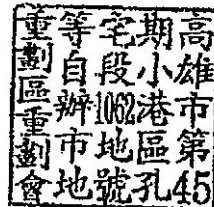 高雄市第45
期小港區孔
宅段1062地號
等自辦市地
重劃區重劃會